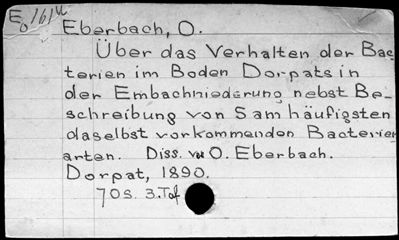 Eberbach, O.
Über das Verhalten der Bac
terien im Boden Dorpats in
der Embachniederung nebst Be-
schreibung von 5 am häufigsten
daselbst vorkommenden Bacterien
arten. Diss. v. O. Eberbach.
Dorpat, 1890.
70S. 3.Taf